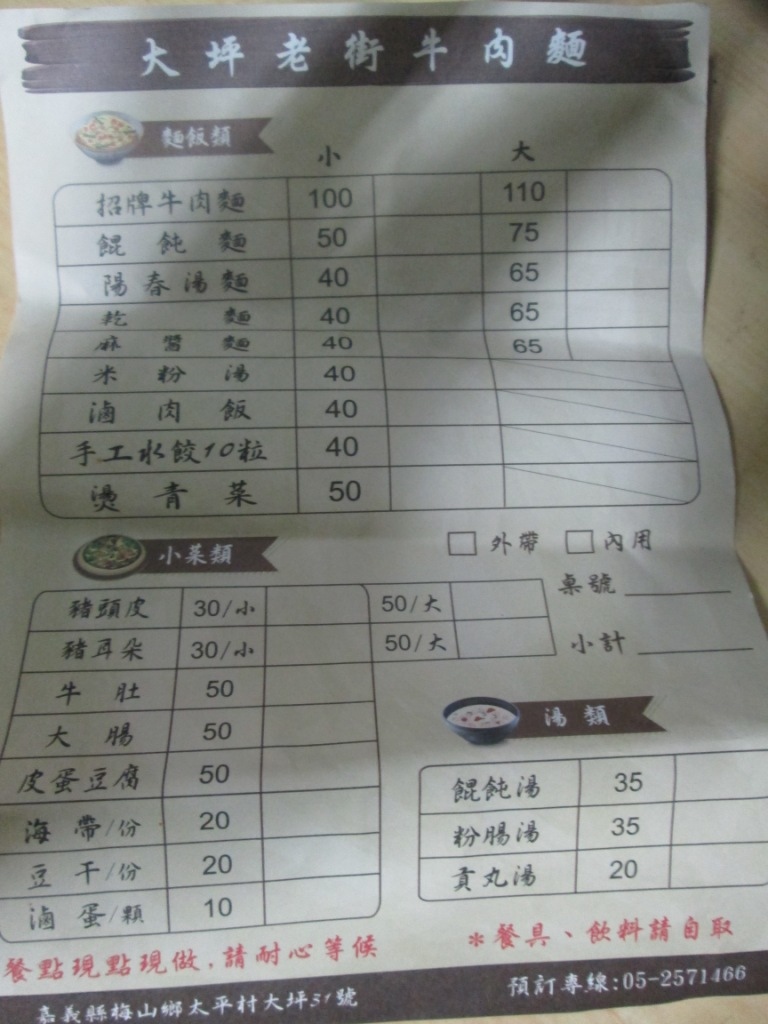 大坪老街牛肉麵
麵飯類
小 大
招牌牛肉麵 100 110
餛飩麵 50 75
陽春湯麵 40 65
乾麵 40 65
麻醬麵 40 65
米粉湯 40
滷肉飯 40
手工水餃10粒 40
燙青菜 50
小菜類
外帶 內用
桌號
小計
豬頭皮 30/小 50/大
豬耳朵 30/小 50/大
牛肚 50
大腸 50
皮蛋豆腐 50
海帶/份 20
豆干/份 20
滷蛋/顆 10
湯類
餛飩湯 35
粉腸湯 35
貢丸湯 20
餐點現點現做,請耐心等候
*餐具、飲料請自取
嘉義縣梅山鄉太平村大坪31號
預訂專線:05-2571466